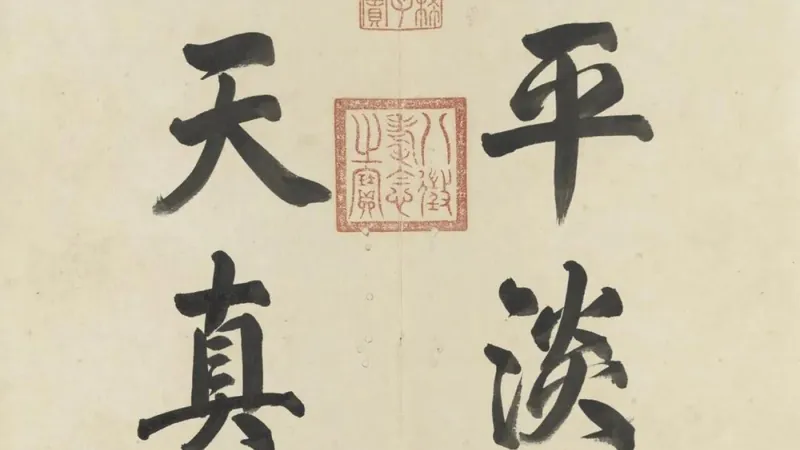 平淡
八徵
耄念
之寶
天真